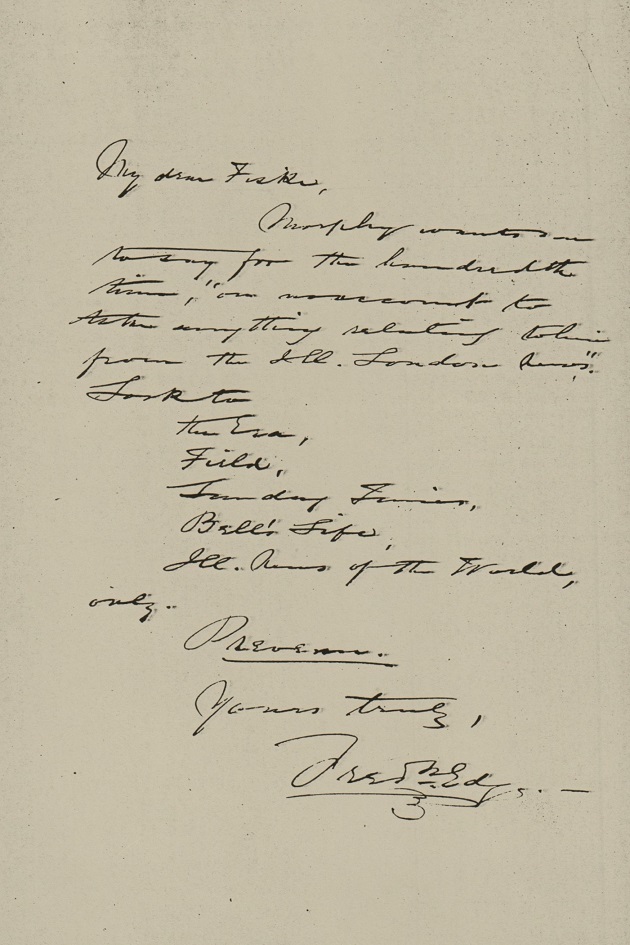 My dear Fiske,
Morphy wants me
to say for the hundredth
time, "on no account to
take anything relating to him
from the Ill. London News".
Look to
the Era,
Field,
Sunday Times,
Bell's Life,
Ill. News of the World,
only.
Yours truly,
Fredk Edge